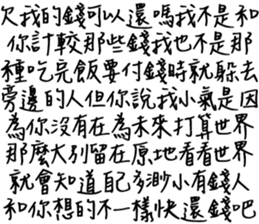 欠我的錢可以還嗎我不是和
你計較那些錢我也不是那
種吃完飯要付錢時就躲去
旁邊的人但你說我小氣是因
為你沒有在為未來打算世界
那麼大別留在原地看看世界
就會知道自己多渺小有錢人
和你想的不一樣快還錢吧